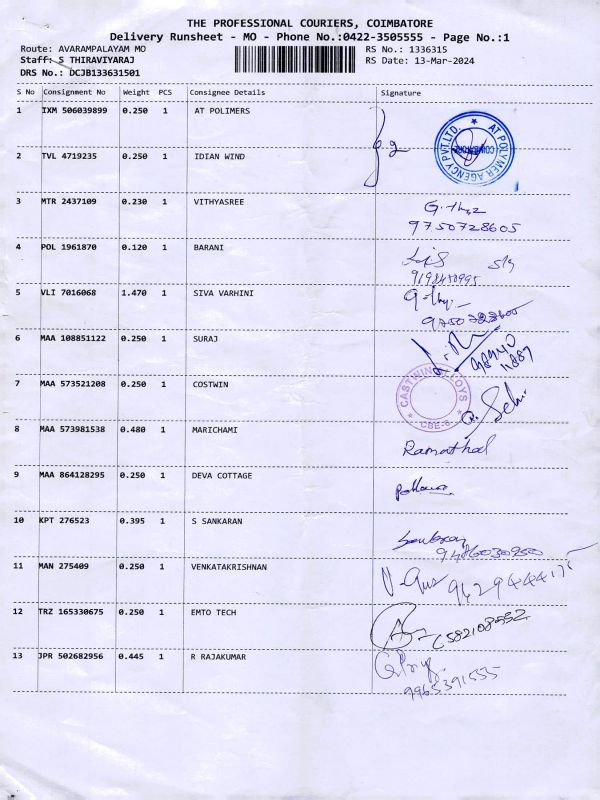 THE PROFESSIONAL COURIERS, COIMBATORE
Delivery Runsheet - MO - Phone No.:0422-3505555 - Page No.:1
Route: AVARAMPALAYAM MO RS No.: 1336315
Staff: S THIRAVIYARAJ RS Date: 13-Mar-2024
DRS No.: DCJB133631501
S No Consignment No Weight PCS Consignee Details Signature
1 IXM 506039899 0.250 1 AT POLIMERS
AT POLYMER AGENCY PVT.LTD.
COIMBATORE
2 TVL 4719235 0.250 1 IDIAN WIND
3 MTR 2437109 0.230 1 VITHYASREE
9750728605
4 POL 1961870 0.120 1 BARANI
5 VLI 7016068 1.470 1 SIVA VARHINI
6 MAA 108851122 0.250 1 SURAJ
7 MAA 573521208 0.250 1 COSTWIN
CASTWIN ALLOYS
CBE-6
8 MAA 573981538 0.480 1 MARICHAMI
Ramathal
9 MAA 864128295 0.250 1 DEVA COTTAGE
10 KPT 276523 0.395 1 S SANKARAN
9486030950
11 MAN 275409 0.250 1 VENKATAKRISHNAN
12 TRZ 165330675 0.250 1 EMTO TECH
13 JPR 502682956 0.445 1 R RAJAKUMAR
9965391555